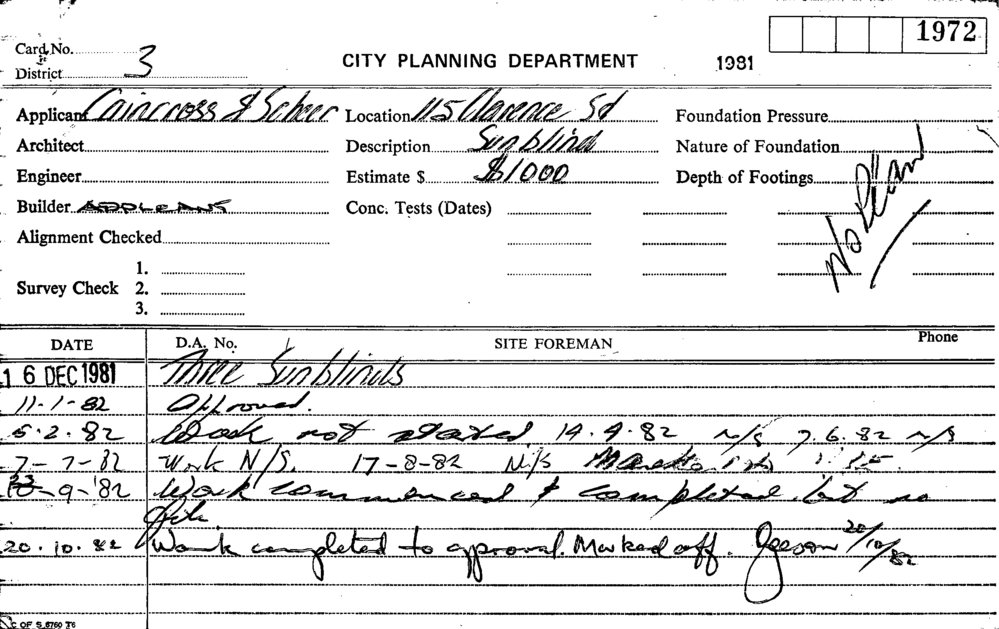 1972
Card No.
District 3
CITY PLANNING DEPARTMENT 1981
Applicant Caincross & Scheer Location 115 Clarence St Foundation Pressure
Architect Description Sunblind Nature of Foundation
Engineer Estimate $ $1000 Depth of Footings
No Plan
Builder APPLICANT Conc. Tests (Dates)
Alignment Checked
1.
Survey Check 2.
3.
DATE D.A. No. SITE FOREMAN Phone
16 DEC 1981 Three Sunblinds
11-1-82 Approved.
5.2.82 Work not started 14.4.82 n/s 7.6.82 n/s
7-7-82 Work N/S. 17-8-82 N/S
-9-82 Work commenced & completed but no
20.10.82 Work completed to aproval. Marked off. 20/10/82
C OF S 6760 76